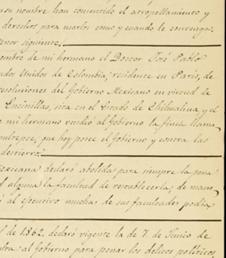 su nombre han consentido el atropellamiento y
derechos para usarlos como y cuando le convenga.
tenor siguiente.
contra de mi hermano el Doctor José Pablo
Estados Unidos de Colombia, residente en París, de
resoluciones del Gobierno Mexicano en virtud de
Encinillas, sita en el Estado de Chihuahua y el
mi hermano vendió al Gobierno la finca llama
que hoy posee el Gobierno y contra las
destierro.
declaró abolida para siempre la pena
alguna la facultad de restablecerla; de mane
al ejecutivo muchas de sus facultades podía
de 1862, declaró vigente la de 7 de Junio de
al Gobierno para penar los delitos políticos